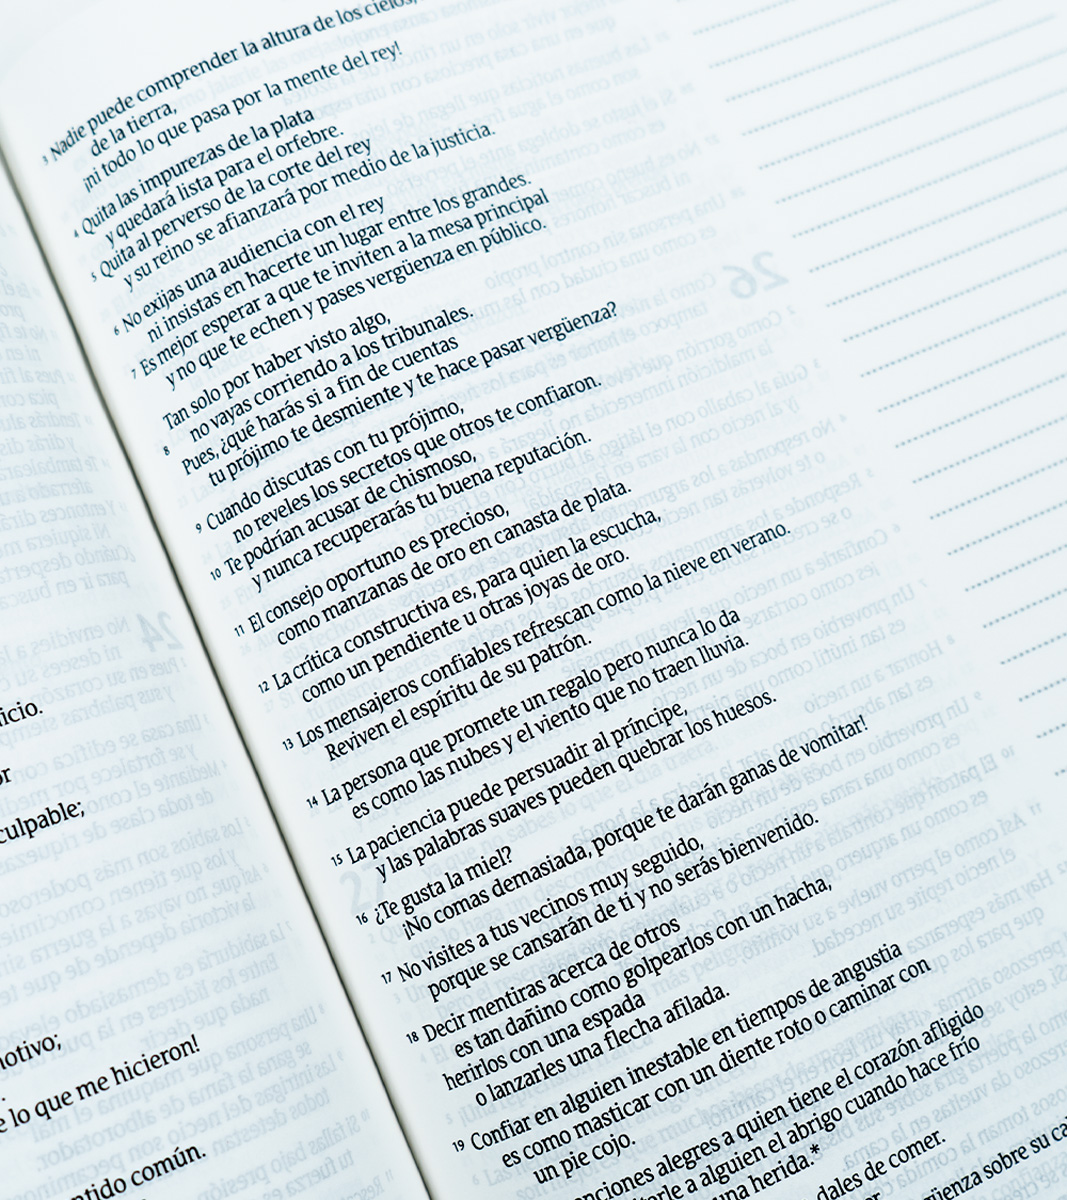 ficio.
or
culpable;
notivo;
e lo que me hicieron!
ntido común.
3 Nadie puede comprender la altura de los cielos,
de la tierra,
¡ni todo lo que pasa por la mente del rey!
4 Quita las impurezas de la plata
y quedará lista para el orfebre.
5 Quita al perverso de la corte del rey
y su reino se afianzará por medio de la justicia.
6 No exijas una audiencia con el rey
ni insistas en hacerte un lugar entre los grandes.
7 Es mejor esperar a que te inviten a la mesa principal
y no que te echen y pases vergüenza en público.
Tan solo por haber visto algo,
8 no vayas corriendo a los tribunales.
Pues, ¿qué harás si a fin de cuentas
tu prójimo te desmiente y te hace pasar vergüenza?
9 Cuando discutas con tu prójimo,
no reveles los secretos que otros te confiaron.
10 Te podrían acusar de chismoso,
y nunca recuperarás tu buena reputación.
11 El consejo oportuno es precioso,
como manzanas de oro en canasta de plata.
12 La crítica constructiva es, para quien la escucha,
como un pendiente u otras joyas de oro.
13 Los mensajeros confiables refrescan como la nieve en verano.
Reviven el espíritu de su patrón.
14 La persona que promete un regalo pero nunca lo da
es como las nubes y el viento que no traen lluvia.
15 La paciencia puede persuadir al príncipe,
y las palabras suaves pueden quebrar los huesos.
16 ¿Te gusta la miel?
¡No comas demasiada, porque te darán ganas de vomitar!
17 No visites a tus vecinos muy seguido,
porque se cansarán de ti y no serás bienvenido.
18 Decir mentiras acerca de otros
es tan dañino como golpearlos con un hacha,
herirlos con una espada
o lanzarles una flecha afilada.
19 Confiar en alguien inestable en tiempos de angustia
es como masticar con un diente roto o caminar con
un pie cojo.
nciones alegres a quien tiene el corazón afligido
rle a alguien el abrigo cuando hace frío
una herida.*
dales de comer.
güenza sobre su ca